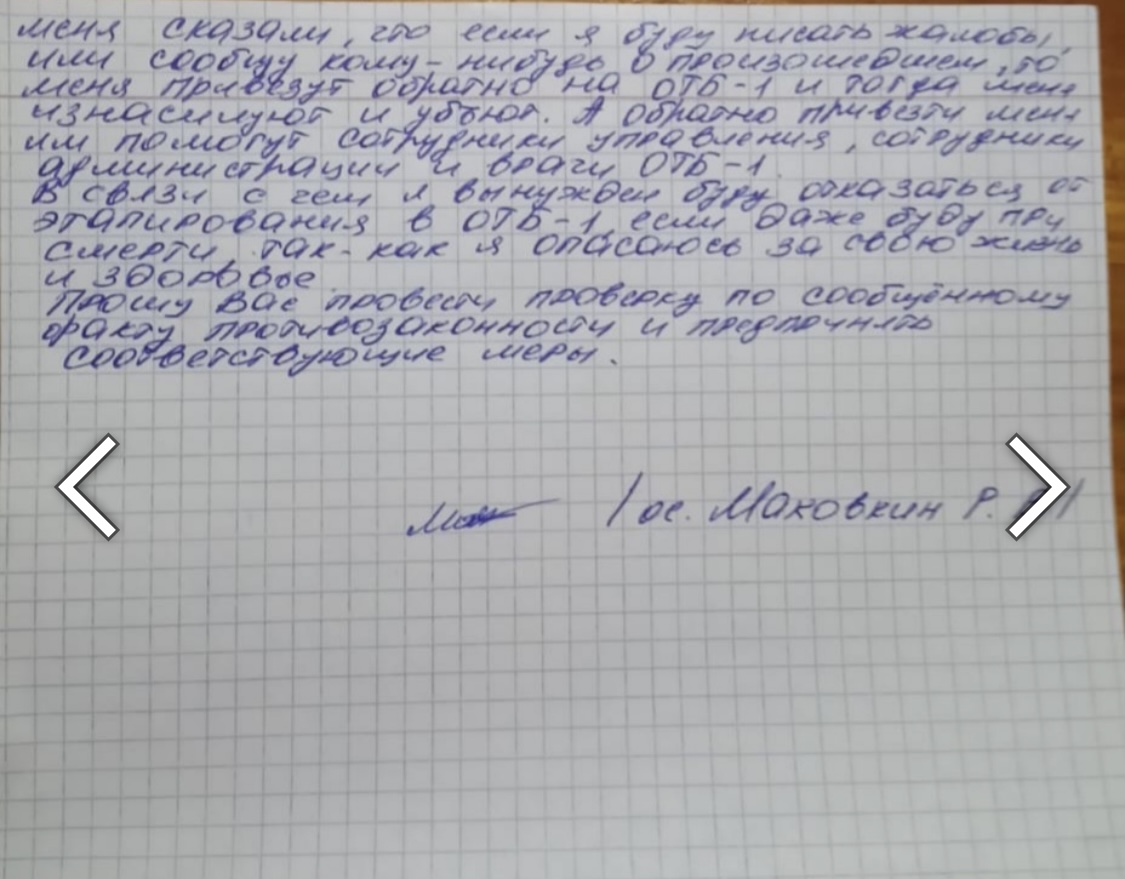 меня сказали, что если я буду писать жалобы,
или сообщу кому-нибудь о произошедшем, то
меня привезут обратно на ОТБ-1 и тогда меня
изнасилуют и убьют. А обратно привезти меня
им помогут сотрудники управления, сотрудники
администрации и врачи ОТБ-1.
В связи с чем я вынужден буду отказаться от
этапирования в ОТБ-1, если даже буду при
смерти, так-как я опасаюсь за свою жизнь
и здоровье.
Прошу Вас провести проверку по сообщённому
факту противозаконности и предпринять
соответствующие меры.
/ос. Маковкин Р.